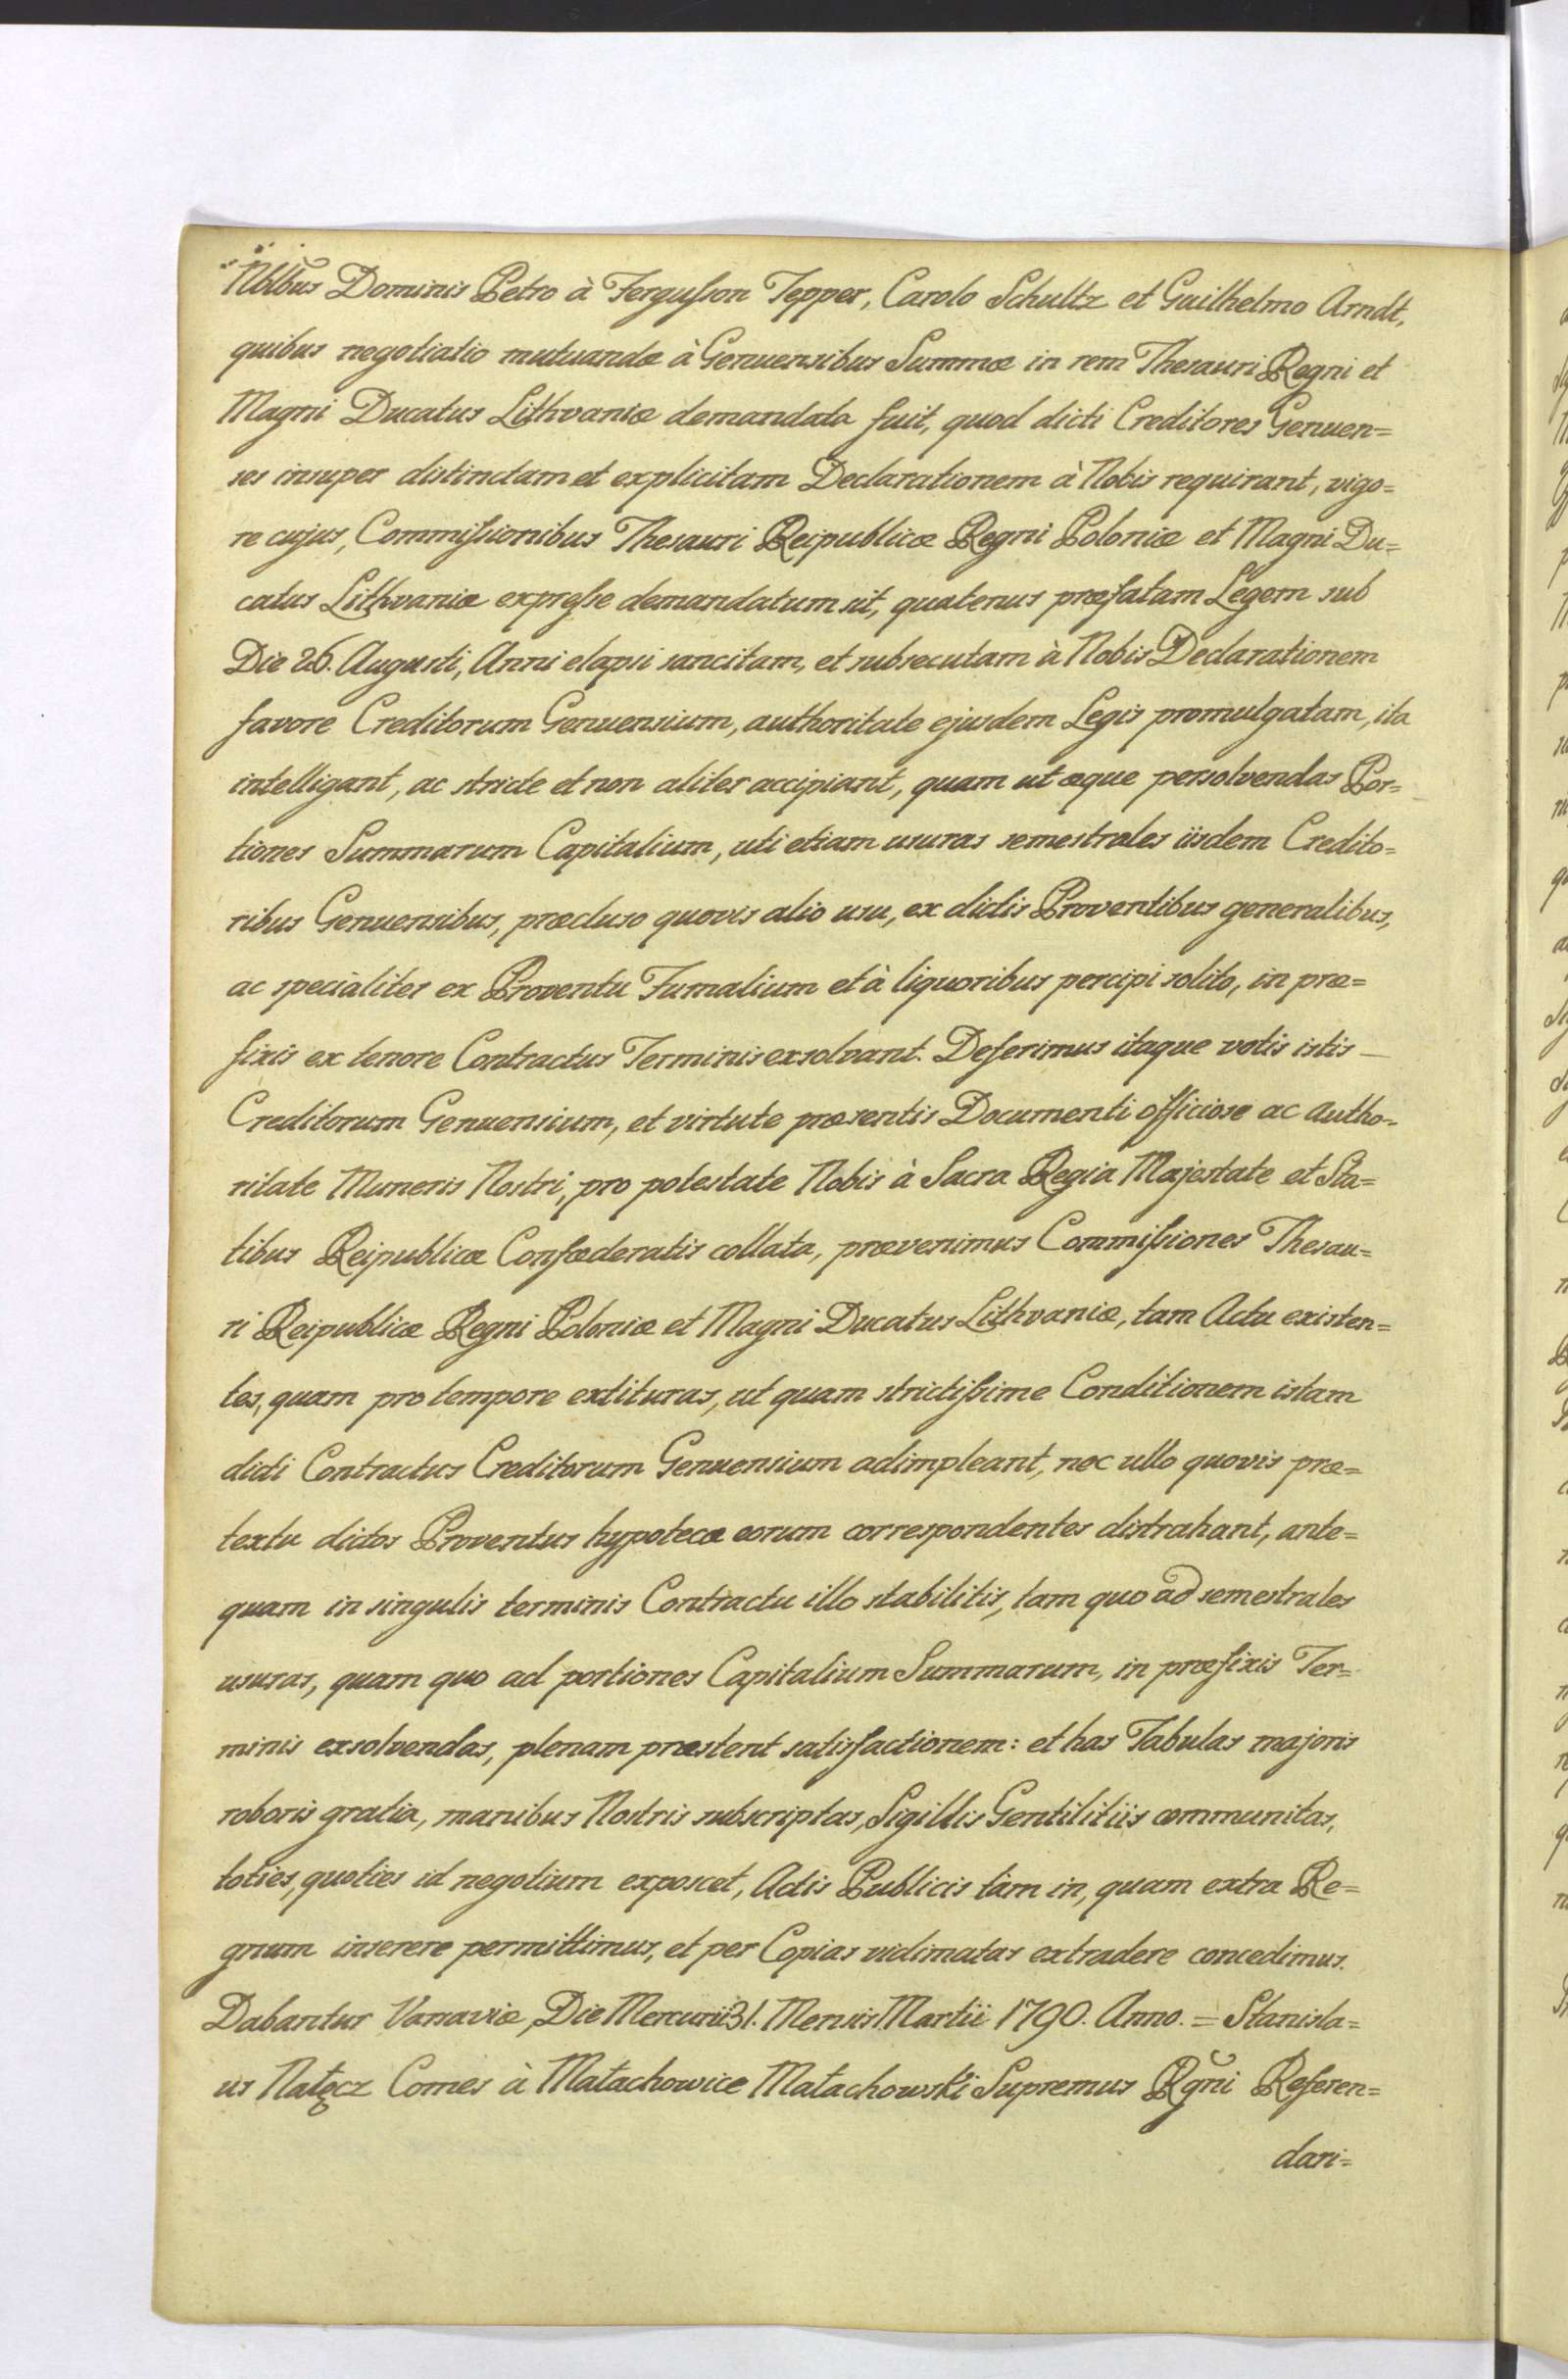 Nblbus Dominis Petro à Fergusson Tepper, Carolo Schultz et Guilhelmo Arndt,
quibus negotiatio mutuandæ à Genuensibus Summæ in rem Thesauri Regni et
Magni Ducatus Lithvaniæ demandata fuit, quod dicti Creditores Genuen=
ses insuper distinctam et explicitam Declarationem à Nobis requirant, vigo=
re cujus, Commissionibus Thesauri Reipublicæ Regni Poloniæ et Magni Du=
catus Lithvaniæ expresse demandatum sit, quatenus præfatam Legem sub
Die 26. Augusti, Anni elapsi sancitam, et subsecutam à Nobis Declarationem
favore Creditorum Genuensium, authoritate ejusdem Legis promulgatam, ita
intelligant, ac stricte et non aliter accipiant, quam ut æque persolvendas Por=
tiones Summarum Capitalium, uti etiam usuras semestrales iisdem Credito=
ribus Genuensibus, præcluso quovis alio usu, ex dictis Proventibus generalibus,
ac specialiter ex Proventu Fumalium et à liquoribus percipi solito, in præ=
fixis ex tenore Contractus Terminis exsolvant. Deferimus itaque votis istis
Creditorum Genuensium, et virtute præsentis Documenti officiose ac Autho=
ritate Muneris Nostri, pro potestate Nobis à Sacra Regia Majestate et Sta=
tibus Reipublicæ Confœderatis collata, prævenimus Commissiones Thesau=
ri Reipublicæ Regni Poloniæ et Magni Ducatus Lithvaniæ, tam Actu existen=
tes, quam pro tempore extituras, ut quam strictissime Conditionem istam
dicti Contractus Creditorum Genuensium adimpleant, nec ullo quovis præ=
textu dictos Proventus hypotecæ eorum correspondentes distrahant, ante=
quam in singulis terminis Contractu illo stabilitis, tam quo ad semestrales
usuras, quam quo ad portiones Capitalium Summarum, in præfixis Ter=
minis exsolvendas, plenam præstent satisfactionem: et has Tabulas majoris
roboris gratia, manibus Nostris subscriptas, Sigillis Gentilitiis communitas,
toties, quoties id negotium exposcet, Actis Publicis tàm in, quam extra Re=
gnum inserere permittimus, et per Copias vidimatas extradere concedimus.
Dabantur Varsaviæ, Die Mercurii 31. Mensis Martii 1790. Anno. = Stanisla=
us Nałęcz Comes à Małachowice Małachowski Supremus Rgni Referen=
dari=